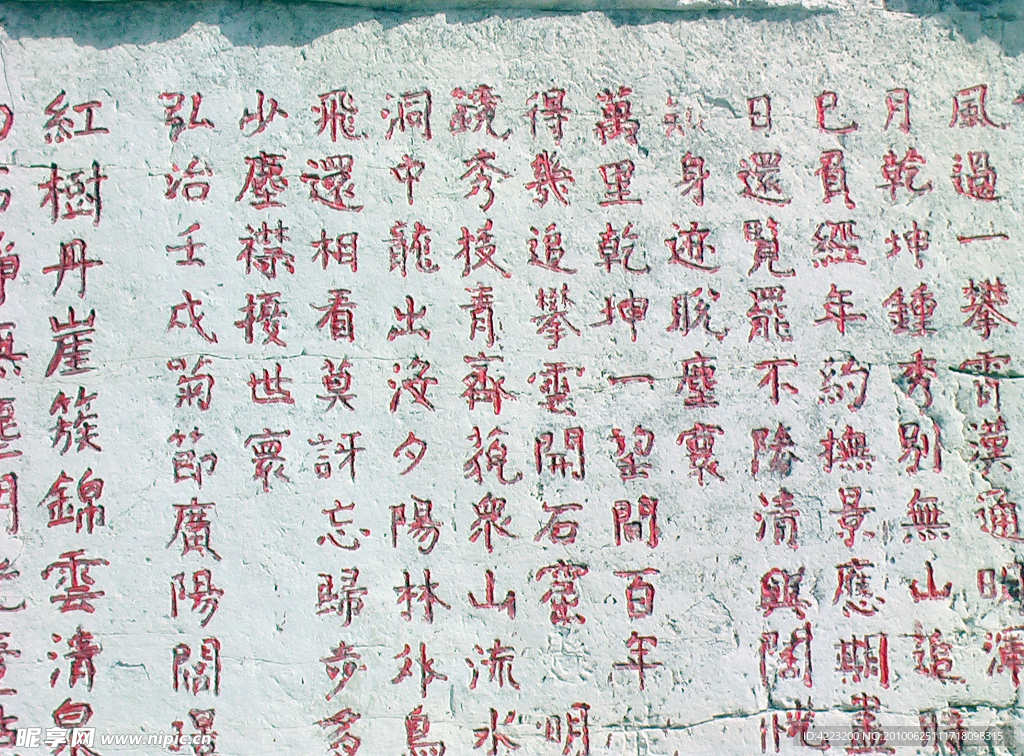 風過一攀霄漢通時渾
月乾坤鍾秀別無山追時
已負經年約撫景應期盡
日還覽罷不陵清興闊懷
身迹脫塵寰
萬里乾坤一望間百年
得幾追攀雲開石竇明
鏡秀拔青齊蒞衆山流水
洞中龍出沒夕陽林外鳥
飛還相看莫訝忘歸步多
少塵襟擾世寰
弘治壬戌菊節廣陽閻
紅樹丹崖簇錦雲清泉
昵享网 www.nipic.cn
ID:4223200 NO:20100625111718098315